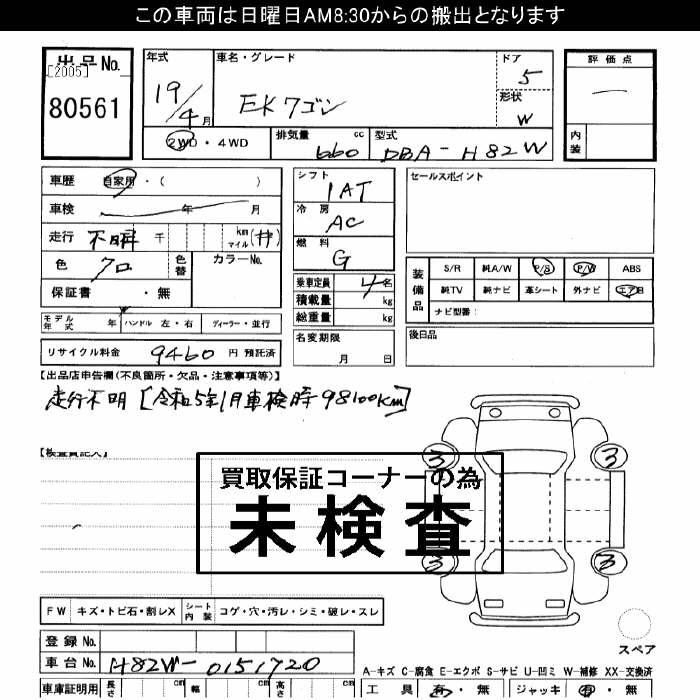 この車両は日曜日AM8:30からの搬出となります
出品No.
[2005]
80561
年式 19/4月
車名・グレード EKワゴン
ドア 5
形状 W
評価点 ー
内装
2WD・4WD
排気量 660 cc
型式 DBA-H82W
車歴 自家用・( )
車検 年 月
走行 不明 千 km マイル (#)
色 クロ 色替 カラーNo.
保証書 ・無
モデル年式 年
ハンドル 左・右
ディーラー・並行
リサイクル料金 9460 円 預託済
シフト 1AT
冷房 AC
燃料 G
乗車定員 4名
積載量 kg
総重量 kg
名変期限
月 日
セールスポイント
装備品
S/R 純A/W P/S P/W ABS
純TV 純ナビ 革シート 外ナビ エアB
ナビ型番:
後日品
【出品店申告欄(不良箇所・欠品・注意事項等)】
走行不明 [令和5年1月車検時98100km]
【検査員記入】
買取保証コーナーの為
未検査
3 3
3 3
スペア
FW キズ・トビ石・割レX シート内装 コゲ・穴・汚レ・シミ・破レ・スレ
登録No.
車台No. H82W-0151720
車庫証明用 長さ cm 幅 cm 高さ cm
A-キズ C-腐食 E-エクボ S-サビ U-凹ミ W-補修 XX-交換済
工具 有・無 ジャッキ 有・無